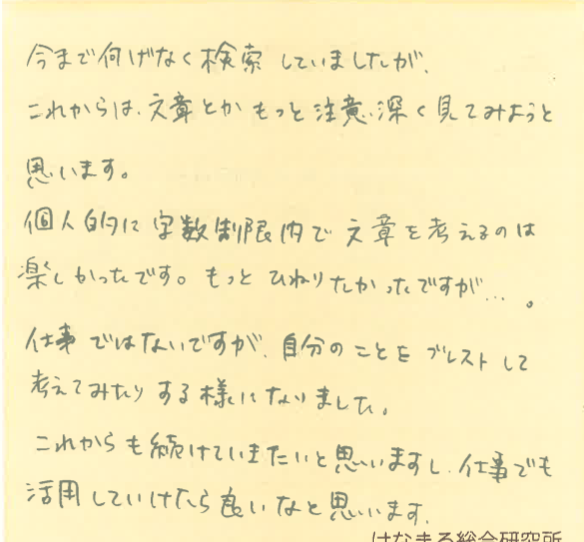 今まで何げなく検索していましたが、
これからは、文章とか もっと注意深く見てみようと
思います。
個人的に字数制限内で文章を考えるのは
楽しかったです。もっとひねりたかったですが…。
仕事ではないですが、自分のことをブレストして
考えてみたりする様になりました。
これからも続けていきたいと思いますし、仕事でも
活用していけたら良いなと思います。
はなまる総合研究所